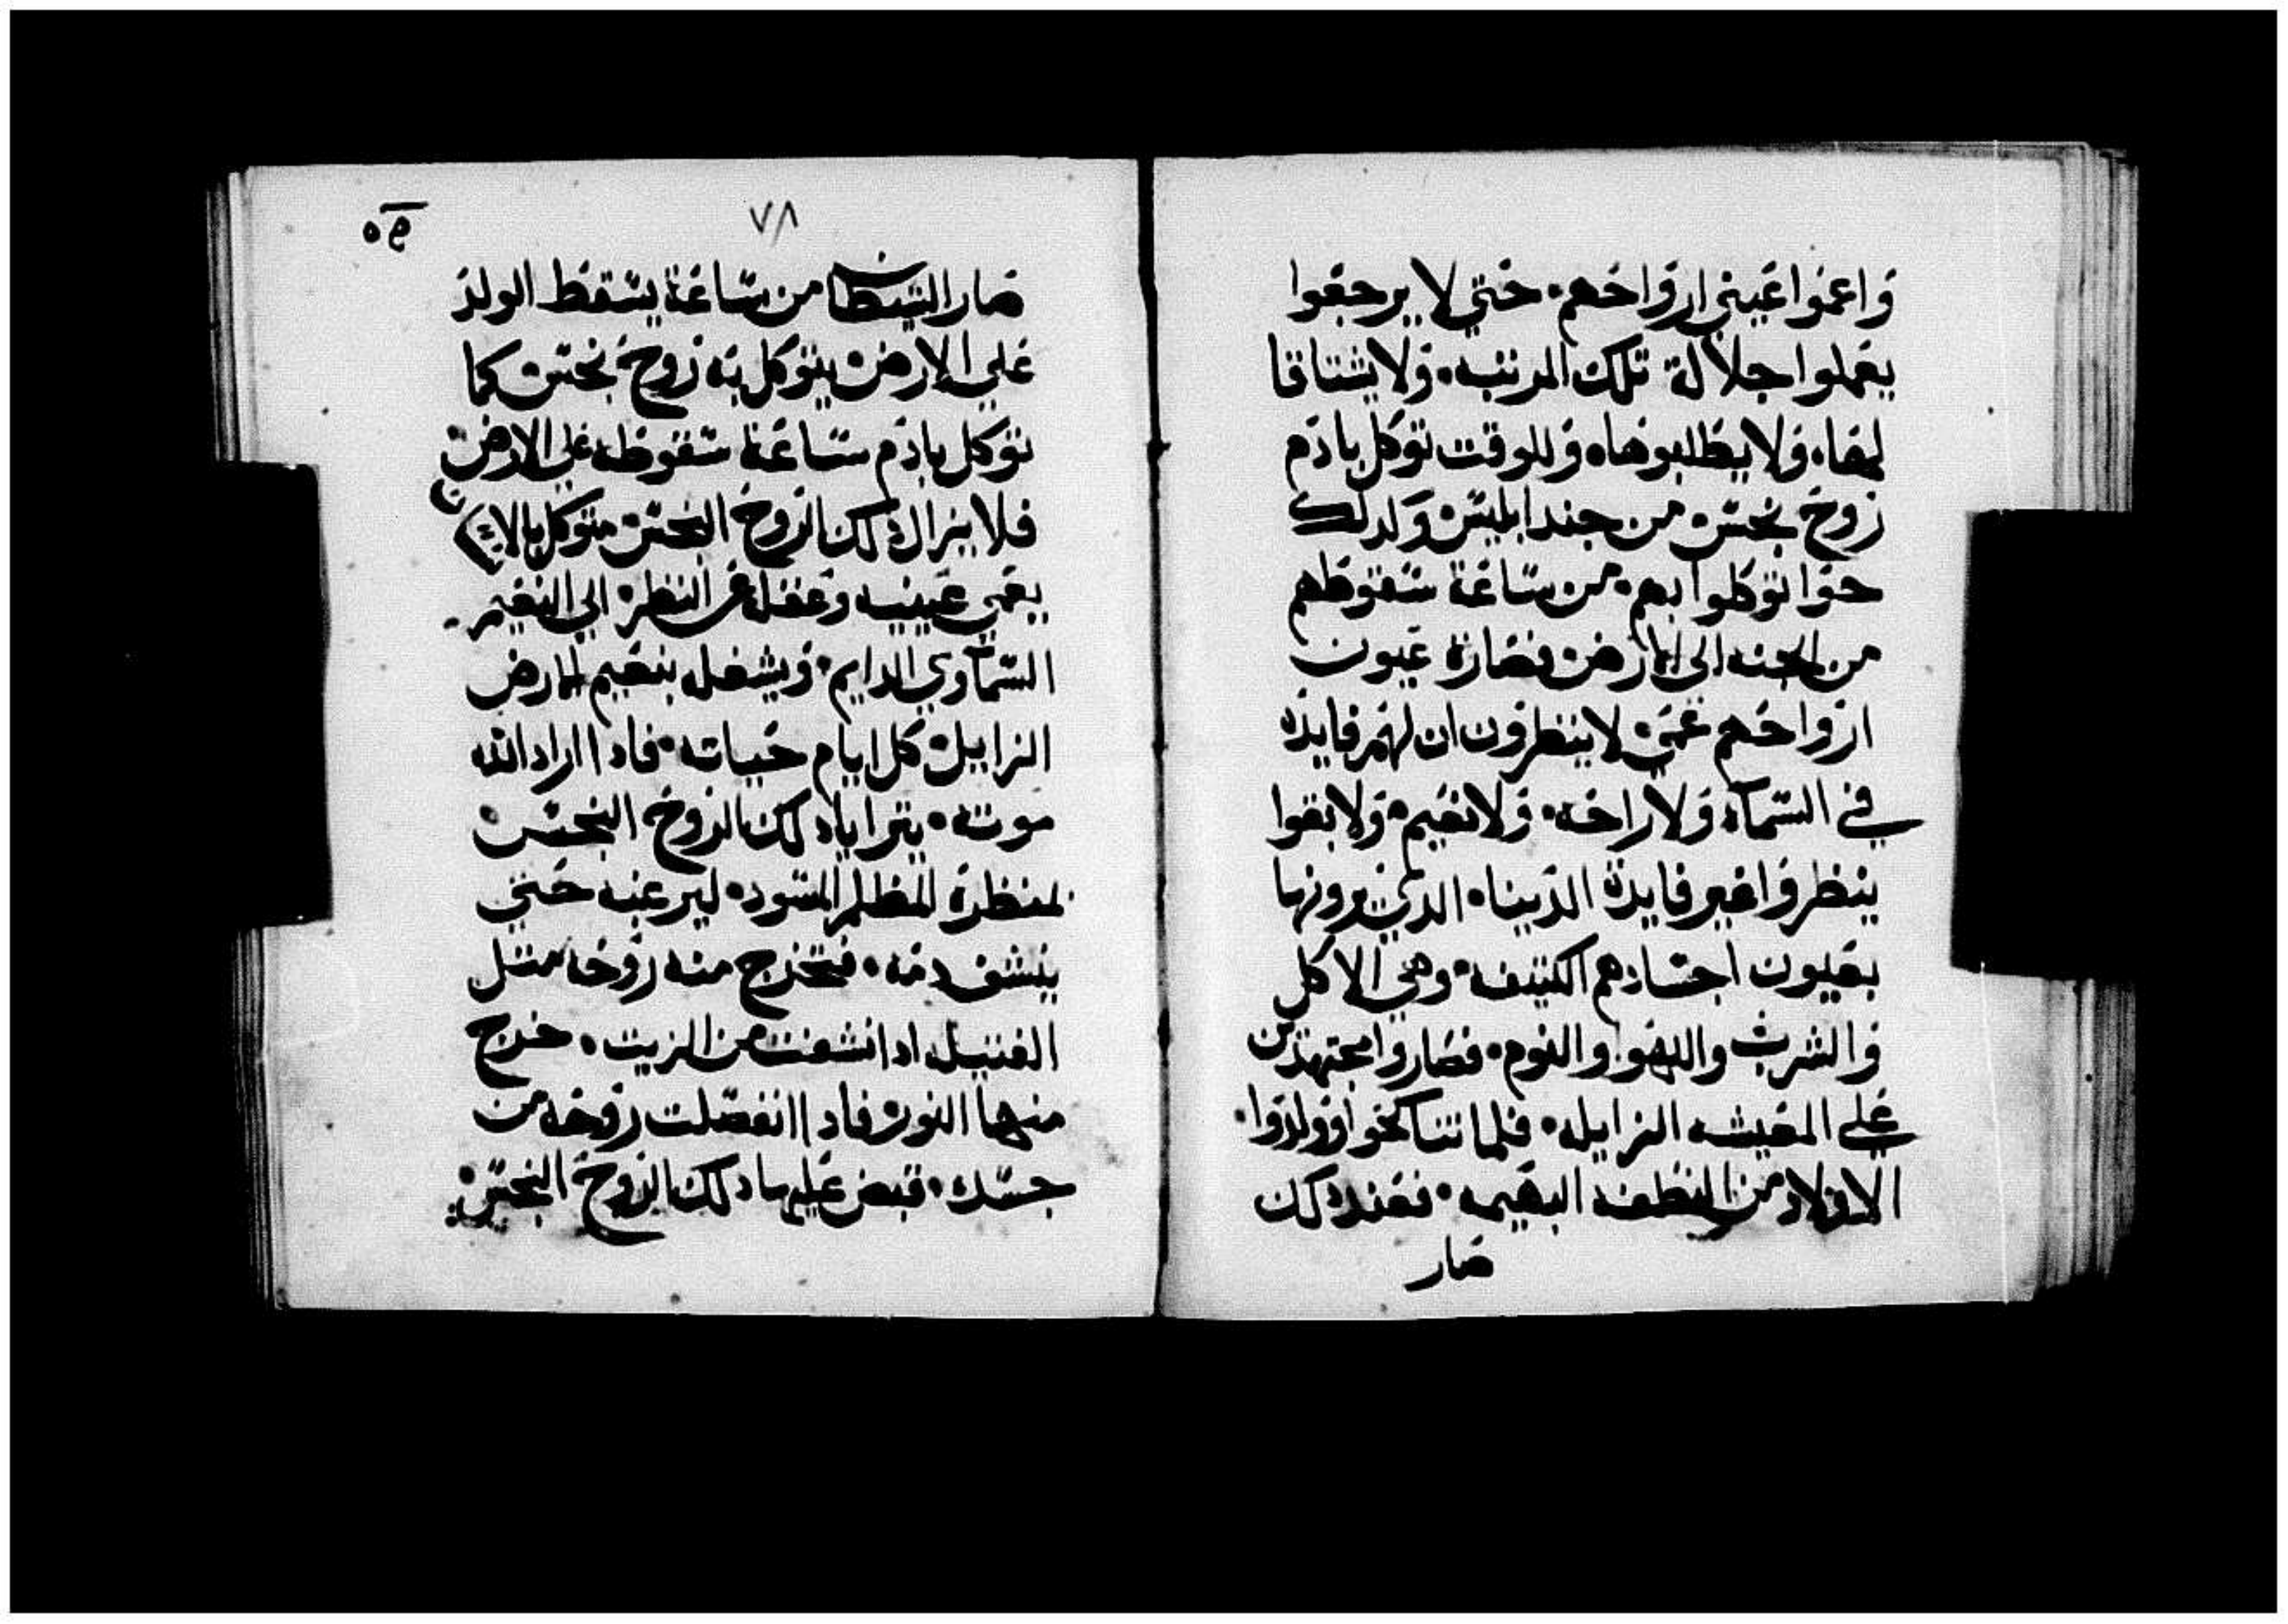 واعموا عيني ارواحهم٠ حتي لا يرجعوا
يعملوا جلالة تلك المرتبه٠ ولا يشتاقا
لها٠ ولا يطلبوها٠ وللوقت توكل بادم
روح نجس من جند ابليس وكدلك
حوا توكلوا بهم٠ من ساعة سقوطهم
من الجنه الي الارض فصارة عيون
ارواحهم عمي لا ينظرون ان لهم فايده
في السماء ولا راحه٠ ولا نعيم٠ ولا بقوا
ينظروا غير فايدة الدنيا٠ الدي يرونها
بعيون اجسادهم الكتيفه٠ وهي الاكل
والشرب واللهوا والنوم٠ فصاروا مجتهدين
علي المعيشه الزايله٠ فلما تناكحوا وولدوا٠
الاولاد من النطفه البهيمه٠ فعند دلك
صار
٧٨
صار الشيطان من ساعة يسقط الولد
علي الارض يتوكل به روح نجس كما
توكل بادم ساعة سقوطه علي الارض
فلا يزال دلك الروح النجس متوكل بالانسان
يعمي عينيه وعقله عن النظر الي النعيم
السماوي الدايم٠ ويشغله بنعيم الارض
الزايل كل ايام حياته٠ فادا اراد الله
موته٠ يترايا دلك الروح النجس
لمنظرة المظلم المسود٠ ليرعبه حتي
ينشف دمه٠ فتخرج منه روحه متل
الفتيله ادا نشفت من الزيت٠ خرج
منها النور٠ فادا انفصلت روحه من
جسده٠ قبض عليها دلك الروح النجس